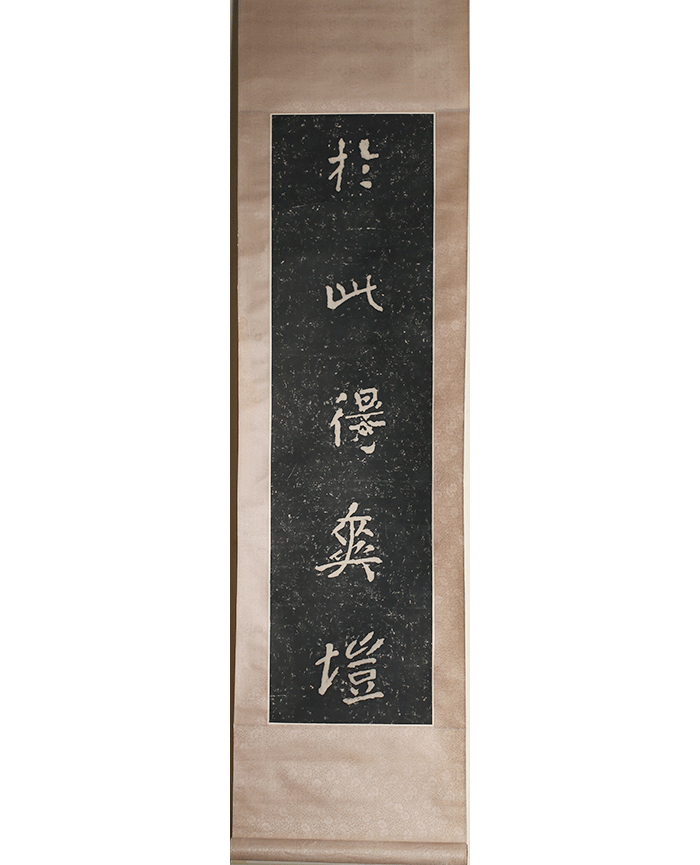 於此得爽塏